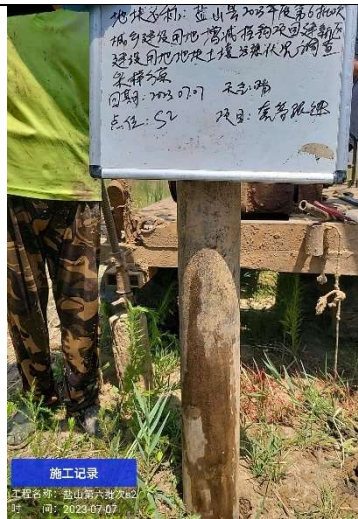 地块名称：盐山县2023年度第6批次
城乡建设用地增减挂钩项目建新区
建设用地地块土壤污染状况调查
采样方案
日期：2023.07.07 天气：晴
点位：S2 项目：套管跟进
施工记录
工程名称：盐山第六批次s2
时 间：2023-07-07